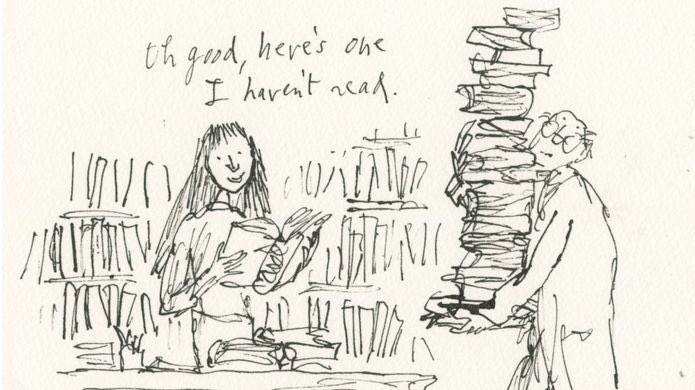 Oh good, here's one
I haven't read.